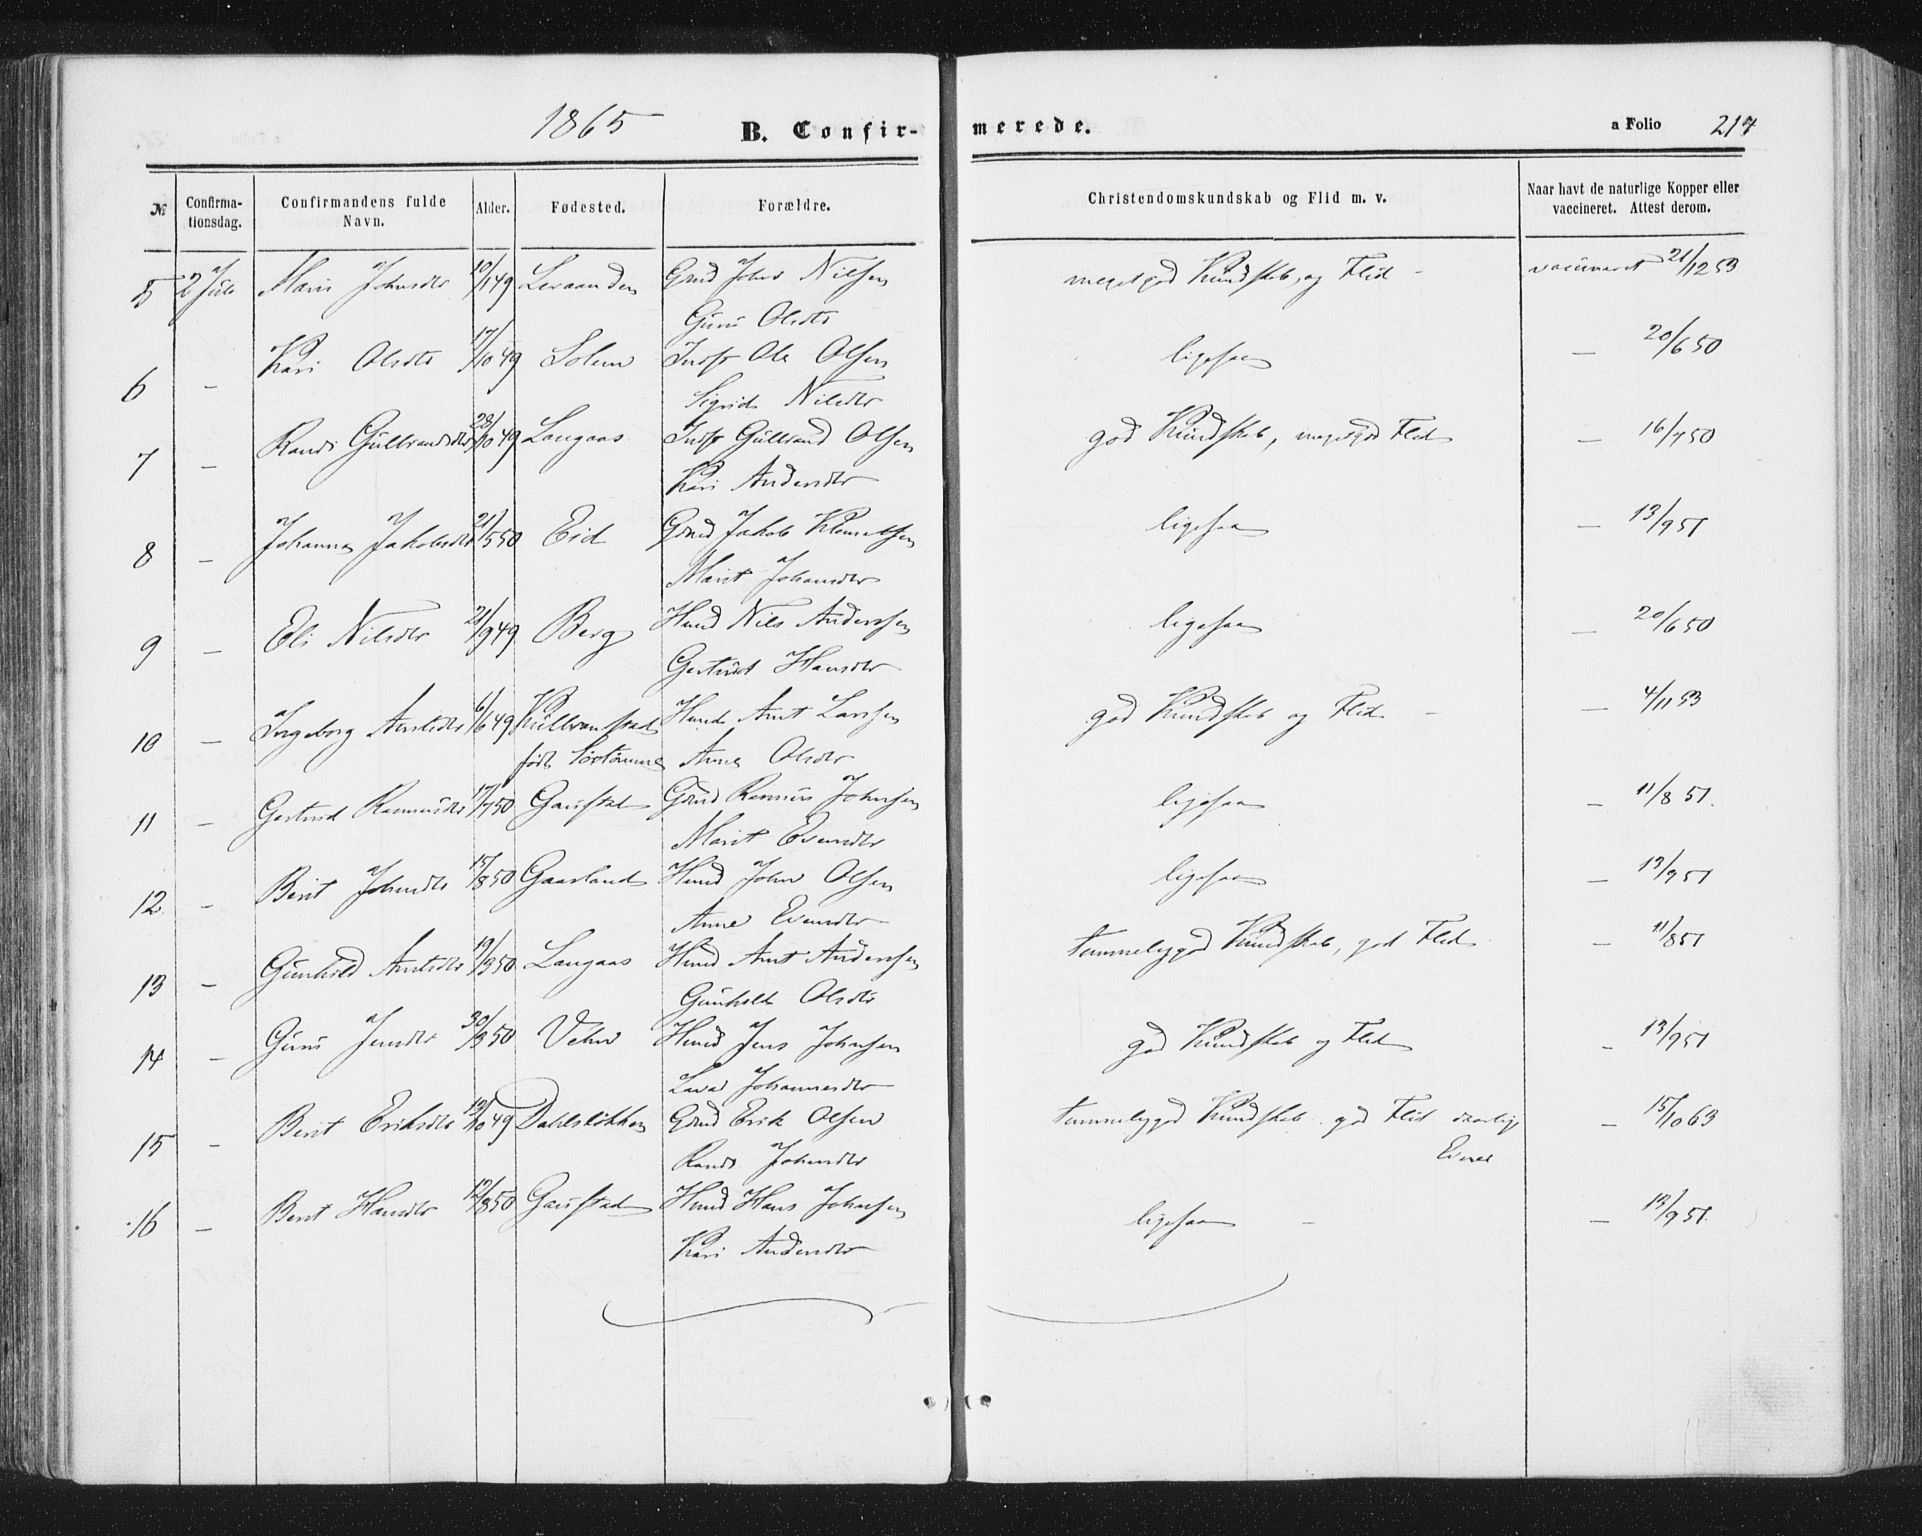 1865 B. Confir- merede. a Folio 217
№ Confirma- tionsdag. Confirmandens fulde Navn. Alder. Fødested. Forældre. Christendomskundskab og Flid m. v. Naar havt de naturlige Kopper eller vaccineret. Attest derom.
5 2 Juli Marit Johnsdtr 10/1 49 Leraanden Grmd John Nilsen megetgod Kundskab, og Flid - vaccineret 21/12 53
Guru Olsdtr
6 - Kari Olsdtr 17/10 49 Solem Indst Ole Olsen ligesaa - 20/6 50
Sigrid Nilsdtr
7 - Randi Gulbrandsdtr 28/10 49 Langaas Indst Gulbrand Olsen god Kundskab, megetgod Flid - 16/7 50
Kari Andersdtr
8 - Johanna Jakobsdtr 21/5 50 Eid Grmd Jakob Klemetsen ligesaa - 13/9 51
Marit Johansdtr
9 - Eli Nilsdtr 21/9 49 Berg Hmd Nils Anderssen ligesaa - 20/6 50
Gertrud Hansdtr
10 - Ingeborg Arntsdtr 6/6 49 Kullranstad Hmd Arnt Larsen god Kundskab og Flid - - 4/11 53
født Anne Olsdtr
11 - Gertrud Rasmusdtr 17/7 50 Gaustad Grmd Rasmus Johnsen ligesaa - 11/8 51.
Marit Evensdtr
12 - Berit Johnsdtr 15/8 50 Gaarland Hmd John Olsen ligesaa - 13/9 51
Anne Evensdtr
13 - Gunhild Arntsdtr 19/3 50 Langaas Hmd Arnt Anderssen temmeliggod Kundskab, god Flid - 11/8 51
Gunhild Olsdtr
14 - Guru Jensdtr 30/3 50 Hmd Jens Johnsen god Kundskab og Flid - 13/9 51
Johannesdtr
15 - Berit Eriksdtr 13/10 49 Dahlsløkken Grmd Erik Olsen temmeliggod Kundskab god Flid daarlig - 15/10 63
Randi Johnsdtr Evner
16 - Berit Hansdtr 12/8 50 Gaustad Hmd Hans Johnsen ligesaa - - 13/9 51.
Kari Andersdtr